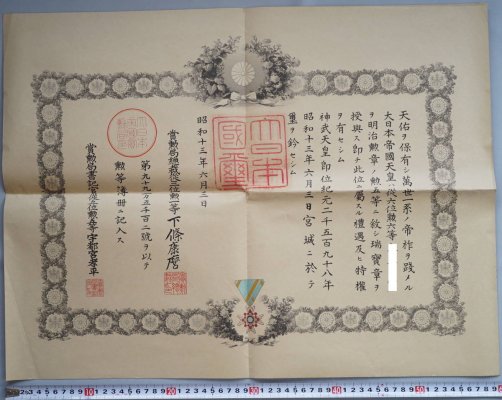 天佑ヲ保有シ萬世一系ノ帝祚ヲ踐メル
大日本帝國天皇ハ從六位勲六等
ヲ明治勲章ノ勲五等ニ敍シ瑞寶章ヲ
授與ス即チ此位ニ屬スル禮遇及ヒ特權
ヲ有セシム
神武天皇即位紀元二千五百九十八年
昭和十三年六月三日宮城ニ於テ
璽ヲ鈐セシム
大日本國璽
昭和十三年六月三日
賞勲局總裁從二位勲一等下條康麿
第九十九万五千百二號ヲ以テ
勲等簿冊ニ記入ス
賞勲局書記官從五位勲五等宇都宮孝平